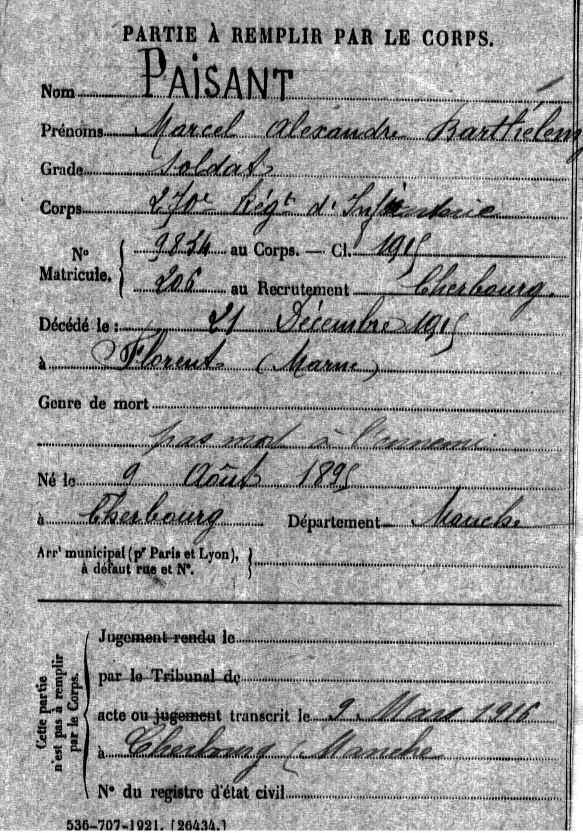 PARTIE À REMPLIR PAR LE CORPS.
Nom PAISANT
Prénoms Marcel Alexandre Barthélemy
Grade Soldat
Corps 270e Régt d'Infanterie
No 9854 au Corps. — Cl. 1915
Matricule. 206 au Recrutement Cherbourg.
Décédé le : 21 Décembre 1915
à Florent (Marne)
Genre de mort
pas mort à l'ennemi
Né le 9 Août 1895
à Cherbourg Département Manche
Arrt municipal (pr Paris et Lyon),
à défaut rue et No.
Cette partie n'est pas à remplir par le Corps.
Jugement rendu le
par le Tribunal de
acte ou jugement transcrit le 9 Mars 1916
à Cherbourg (Manche
No du registre d'état civil
536-707-1921. [26434.]